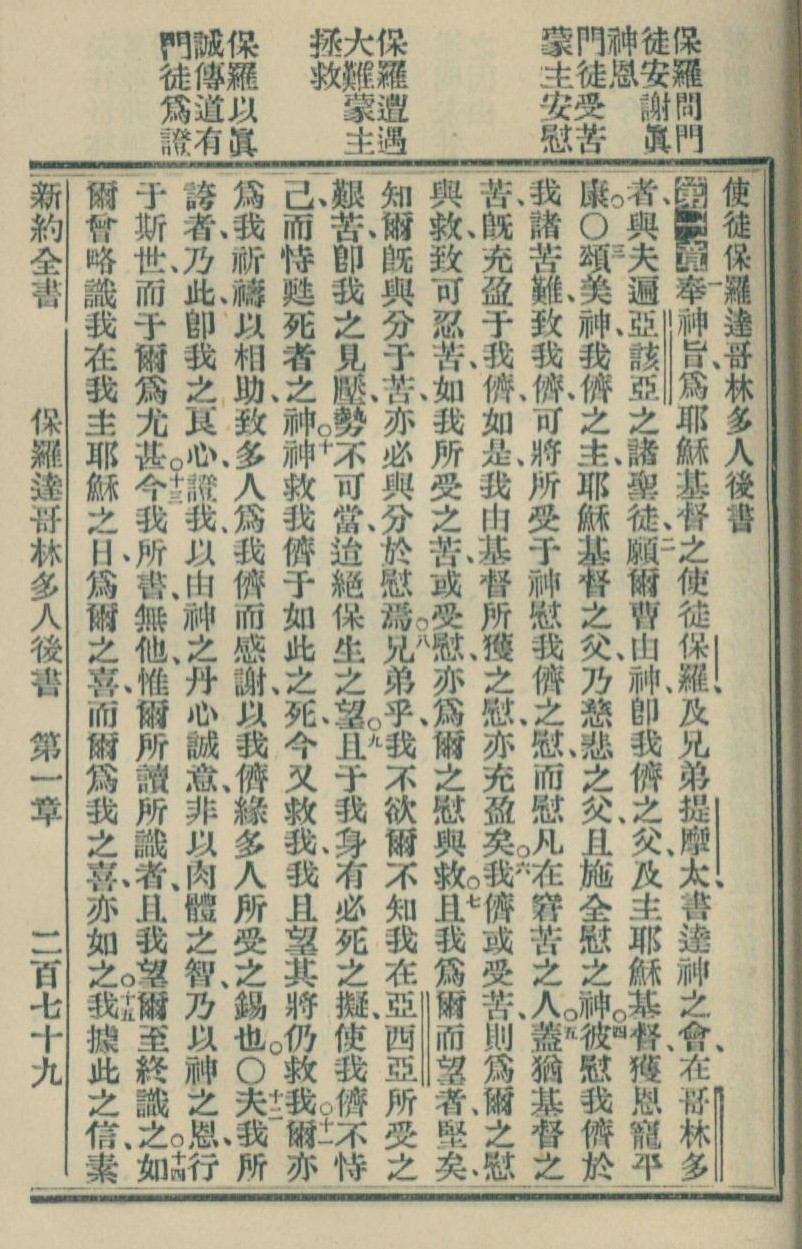 保羅問門
徒安謝眞
神恩
門徒受苦
蒙主安慰
保羅遭遇
大難蒙主
拯救
保羅以眞
誠傳道有
門徒爲證
使徒保羅達哥林多人後書
第一章一奉神旨、爲耶穌基督之使徒保羅、及兄弟提摩太、書達神之會、在哥林多
者、與夫遍亞該亞之諸聖徒、二願爾曹由神、卽我儕之父、及主耶穌基督、獲恩寵平
康。〇三頌美神、我儕之主、耶穌基督之父、乃慈悲之父、且施全慰之神。四彼慰我儕於
我諸苦難、致我儕、可將所受于神慰我儕之慰、而慰凡在窘苦之人。五蓋猶基督之
苦、旣充盈于我儕、如是、我由基督所獲之慰、亦充盈矣。六我儕或受苦、則爲爾之慰
與救、致可忍苦、如我所受之苦、或受慰、亦爲爾之慰與救。七且我爲爾而望者、堅矣、
知爾旣與分于苦、亦必與分於慰焉。八兄弟乎、我不欲爾不知我在亞西亞所受之
艱苦、卽我之見壓、勢不可當、迨絕保生之望。九且于我身有必死之擬、使我儕不恃
己、而恃甦死者之神。十神救我儕于如此之死、今又救我、我且望其將仍救我。十一爾亦
爲我祈禱、以相助、致多人爲我儕而感謝、以我儕緣多人所受之錫也。〇十二夫我所
誇者、乃此、卽我之良心、證我、以由神之丹心誠意、非以肉體之智、乃以神之恩、行
于斯世、而于爾爲尤甚。十三今我所書、無他、惟爾所讀所識者、且我望爾至終識之。十四如
爾曾略識我、在我主耶穌之日、爲爾之喜、而爾爲我之喜、亦如之。十五我據此之信、素
新約全書　保羅達哥林多人後書　第一章　二百七十九